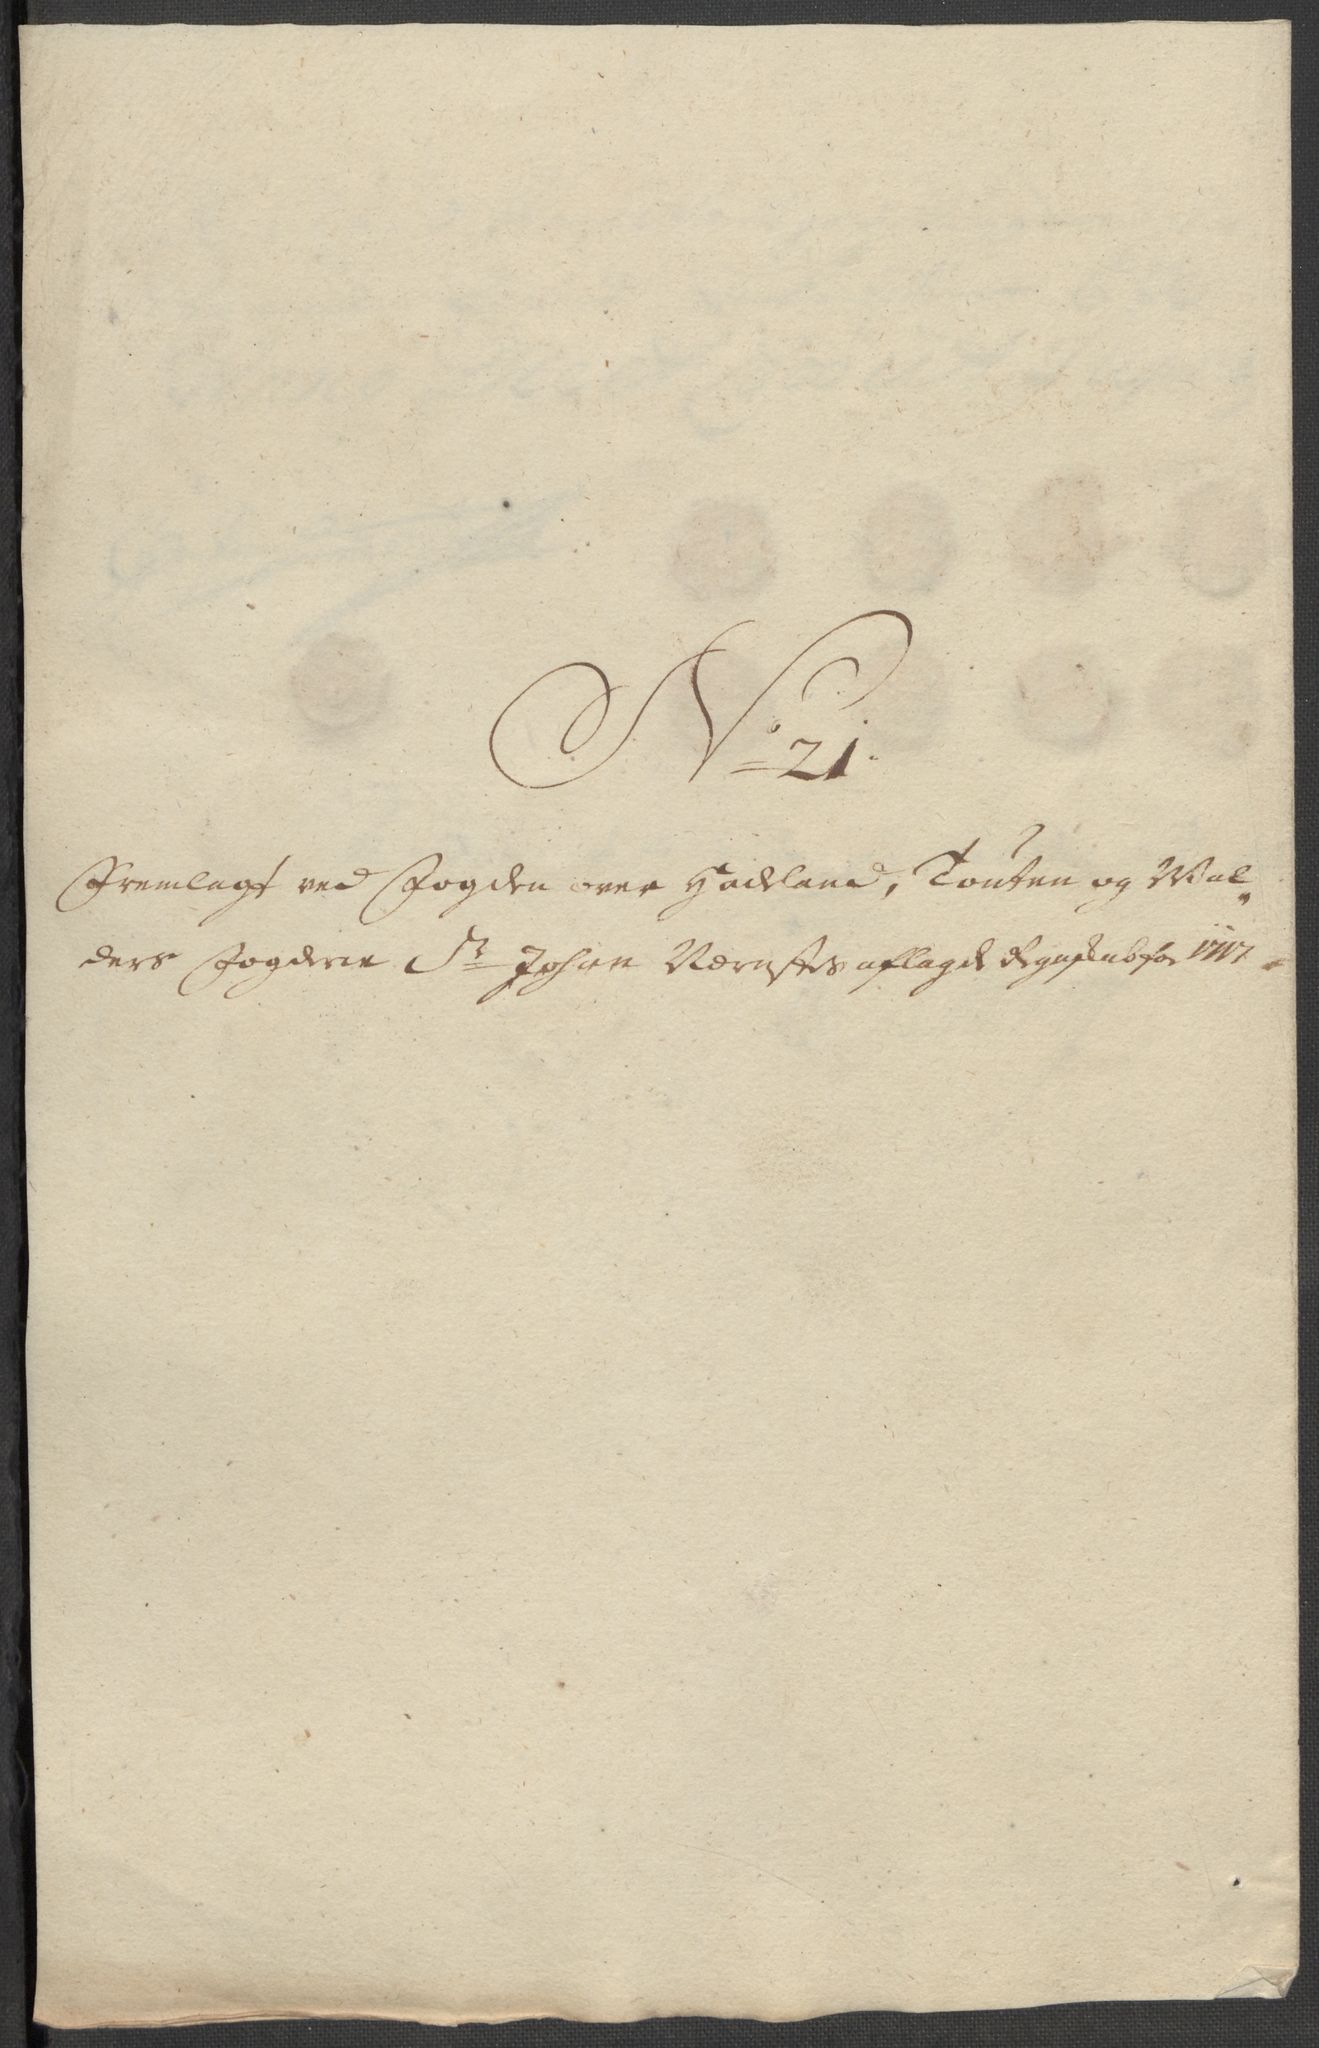 No 21.
Fremlagt ved Fogden over Hadeland, Toten og Wal„
ders Fogderie Sr Johan Vernichs aflagde Regnskab for 1717